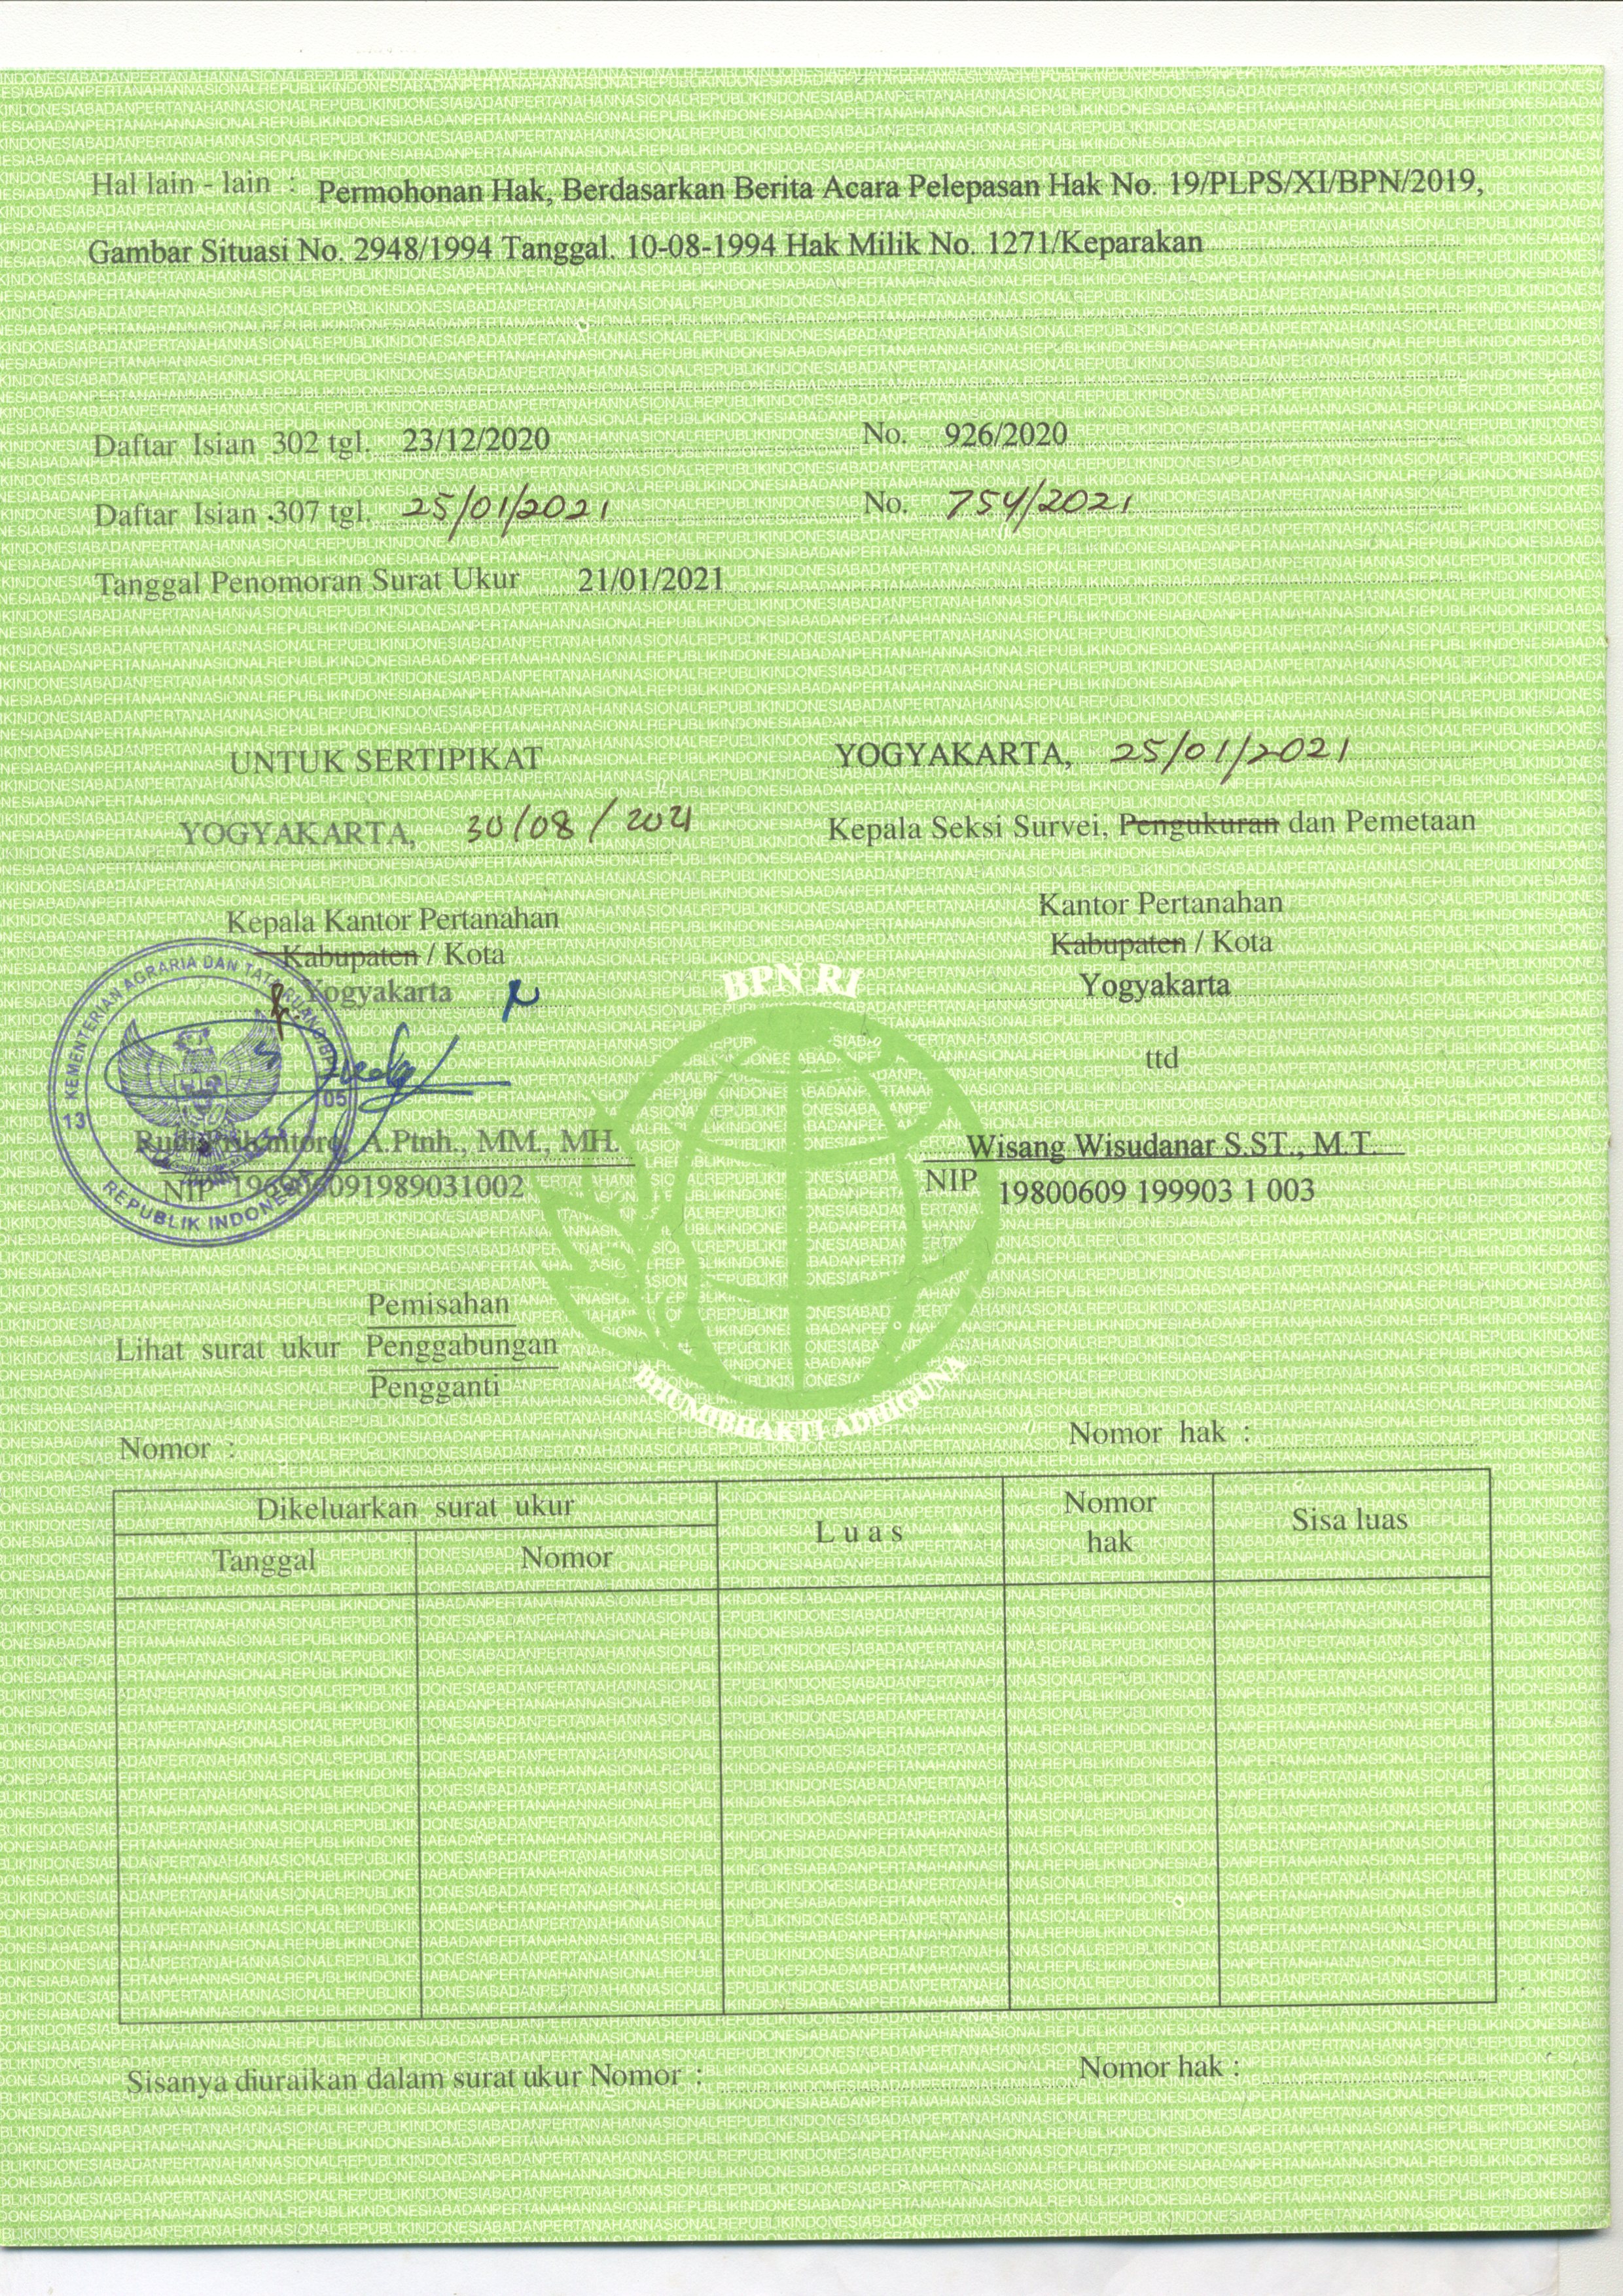 Hal lain - lain : Permohonan Hak, Berdasarkan Berita Acara Pelepasan Hak No. 19/PLPS/XI/BPN/2019,
Gambar Situasi No. 2948/1994 Tanggal. 10-08-1994 Hak Milik No. 1271/Keparakan
Daftar Isian 302 tgl. 23/12/2020 No. 926/2020
Daftar Isian 307 tgl. 25/01/2021 No. 754/2021
Tanggal Penomoran Surat Ukur 21/01/2021
UNTUK SERTIPIKAT
YOGYAKARTA, 30/08/2021
Kepala Kantor Pertanahan
Kabupaten / Kota
Yogyakarta
KEMENTERIAN AGRARIA DAN TATA RUANG/
13 05
REPUBLIK INDONESIA
A.Ptnh., MM., MH.
NIP 091989031002
YOGYAKARTA, 25/01/2021
Kepala Seksi Survei, Pengukuran dan Pemetaan
Kantor Pertanahan
Kabupaten / Kota
Yogyakarta
ttd
Wisang Wisudanar S.ST., M.T.
NIP 19800609 199903 1 003
BPN RI
BHUMIBHAKTI ADHIGUNA
Pemisahan
Lihat surat ukur Penggabungan
Pengganti
Nomor : Nomor hak :
Dikeluarkan surat ukur
Tanggal Nomor
Luas
Nomor
hak
Sisa luas
Sisanya diuraikan dalam surat ukur Nomor : Nomor hak :